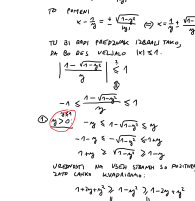 TO POMENI
x - 1/y = ± √(1-y²)/|y| ⇔ x = (1 ± √(1-y²))/y
TU BI RADI PREDZNAK IZBRALI TAKO,
DA BO RES VELJALO |x| ≤ 1.
|(1 - √(1-y²))/y| ≤ 1
-1 ≤ (1 - √(1-y²))/y ≤ 1
① y > 0: -y ≤ 1 - √(1-y²) ≤ y
-1-y ≤ -√(1-y²) ≤ -1+y
1+y ≥ √(1-y²) ≥ 1-y
VREDNOSTI NA VSEH STRANEH SO POZITIVNE
ZATO LAHKO KVADRIRAMO:
1+2y+y² ≥ 1-y² ≥ 1-2y+y²